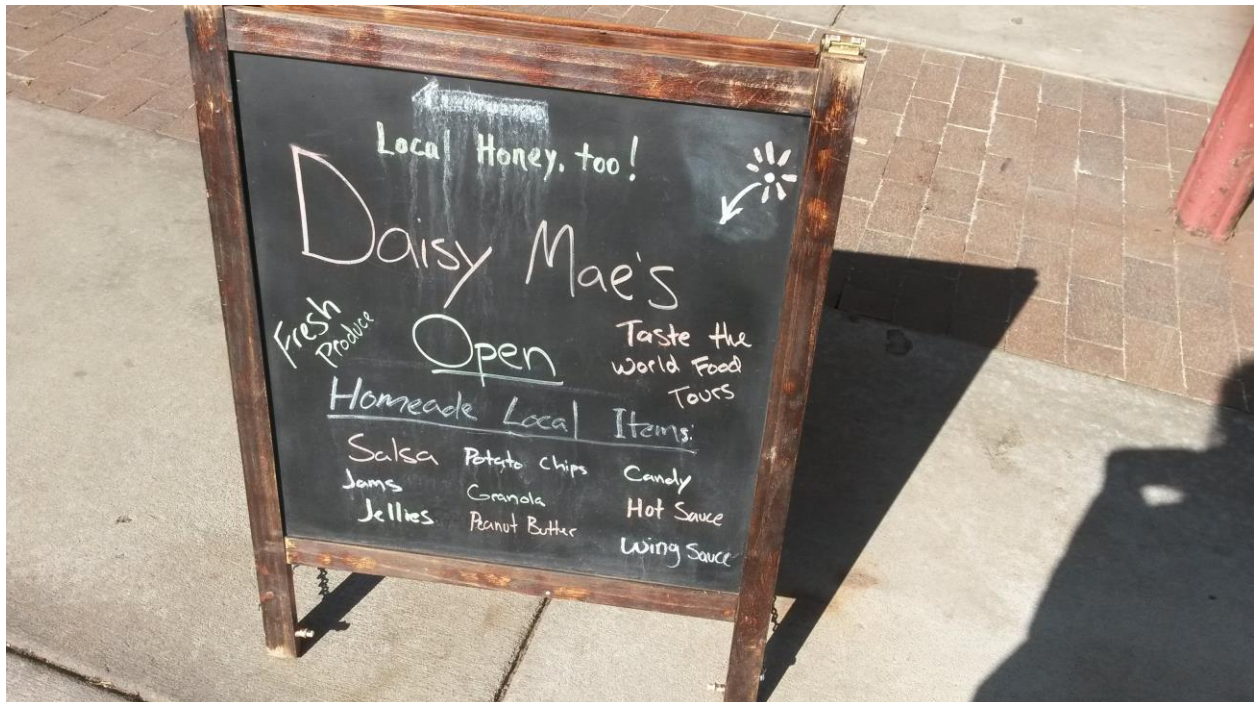 Local Honey, too!
Daisy Mae's
Fresh
Produce
Open
Taste the
World Food
Tours
Homeade Local Items:
Salsa
Jams
Jellies
Potato Chips
Granola
Peanut Butter
Candy
Hot Sauce
Wing Sauce